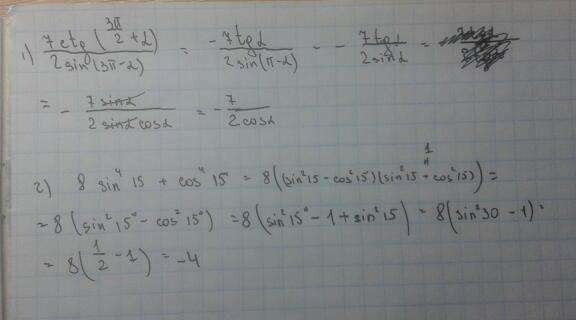 1) 7 ctg (3π/2 + α) / 2 sin (3π - α) = -7 tg α / 2 sin(π - α) = - 7 tg α / 2 sin α =
= - 7 sin α / 2 sin α cos α = -7 / 2 cos α
2) 8 sin⁴ 15 + cos⁴ 15 = 8 (sin² 15 - cos² 15)(sin² 15 + cos² 15) =
1
= 8 (sin² 15° - cos² 15°) = 8 (sin² 15° - 1 + sin² 15) = 8 (sin² 30 - 1) =
= 8 (1/2 - 1) = -4